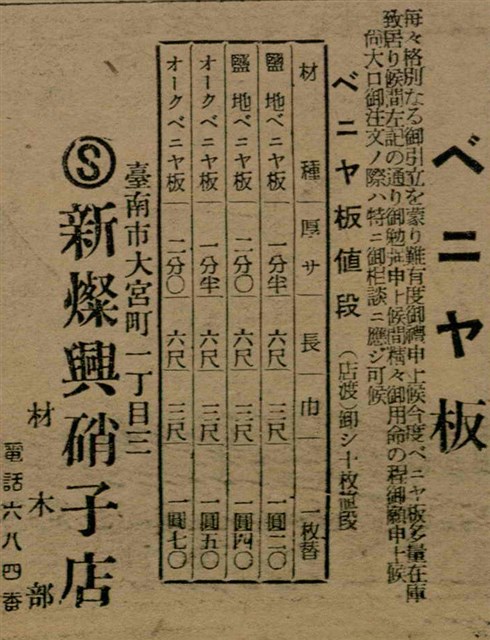 ベニヤ板
毎々格別なる御引立を蒙り難有度御禮申上候今度ベニヤ板多量在庫
致居り候間左記の通り御勉強申上候間精々御用命の程御願申上候
尚大口御注文ノ際ハ特ニ御相談ニ應ジ可候
ベニヤ板値段（店渡シ卸シ十枚値段
材種 厚サ 長 巾 一枚替
鹽地ベニヤ板 一分半 六尺 三尺 一圓二〇
鹽地ベニヤ板 二分〇 六尺 三尺 一圓四〇
オークベニヤ板 一分半 六尺 三尺 一圓五〇
オークベニヤ板 二分〇 六尺 三尺 一圓七〇
臺南市大宮町一丁目三
Ⓢ新燦興硝子店
材木部
電話六八四番